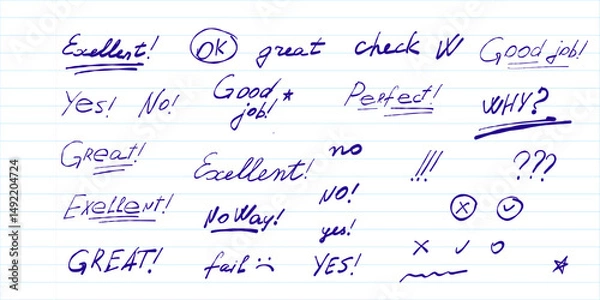 Exellent! OK great check W Good job!
Yes! No! Good job!* Perfect! WHY?
Great! Exellent! no !!! ???
Exellent! No Way! NO!
yes!
GREAT! fail:( YES!
Adobe Stock | #1492204724